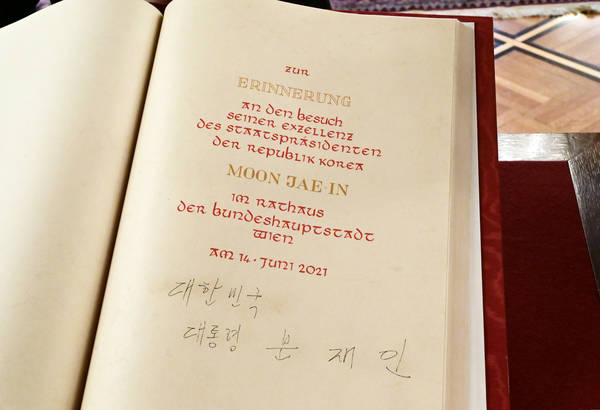 ZUR
ERINNERUNG
AN DEN BESUCH
SEINER EXZELLENZ
DES STAATSPRÄSIDENTEN
DER REPUBLIK KOREA
MOON JAE-IN
IM RATHAUS
DER BUNDESHAUPTSTADT
WIEN
AM 14 · JUNI 2021
대한민국
대통령 문 재 인